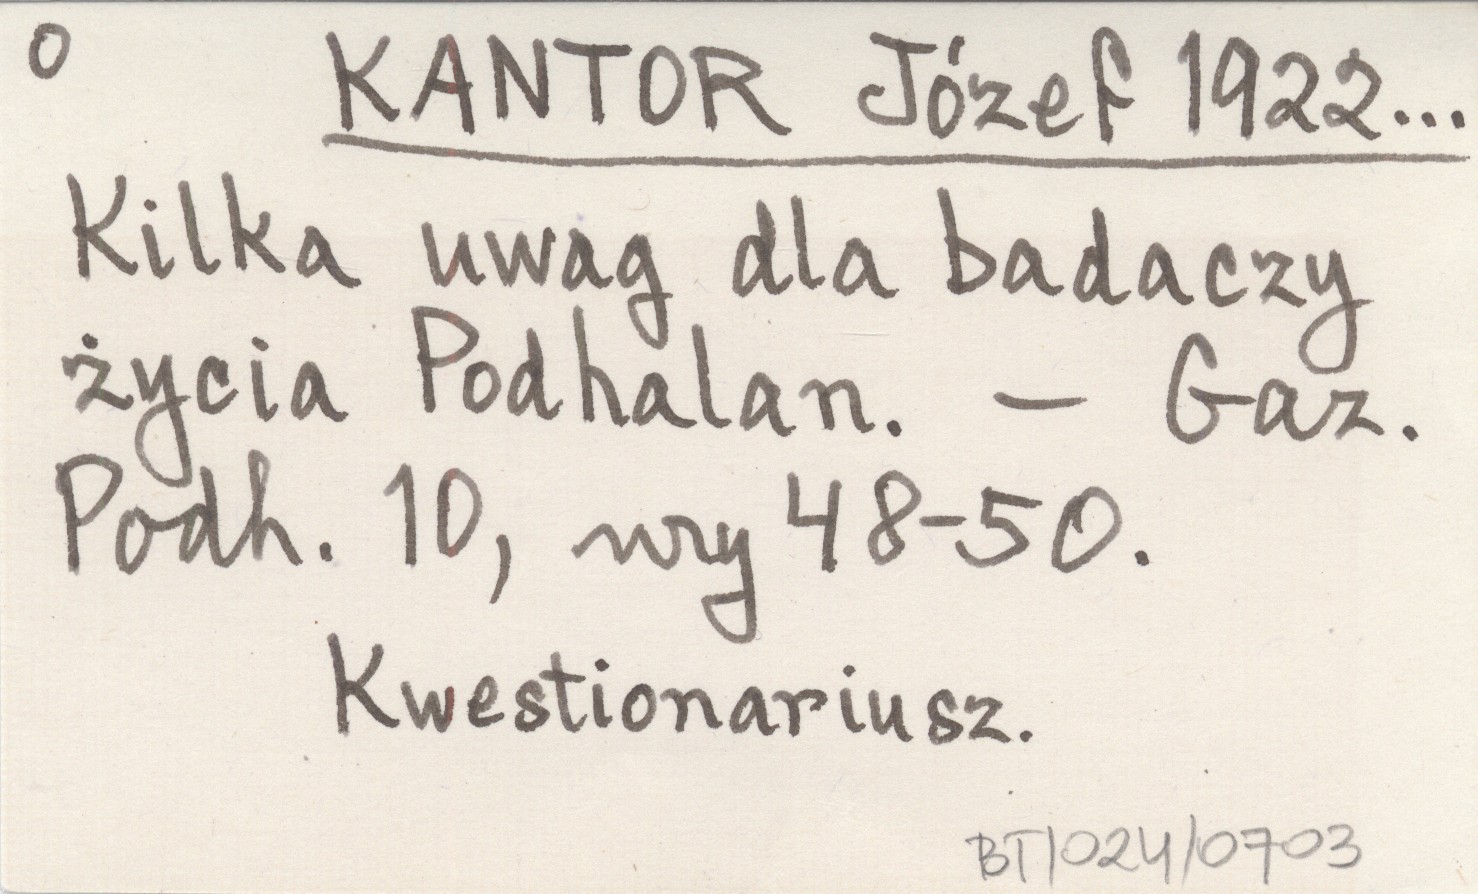 O KANTOR Józef 1922...
Kilka uwag dla badaczy
życia Podhalan. – Gaz.
Podh. 10, nry 48-50.
Kwestionariusz.
BT/024/0703